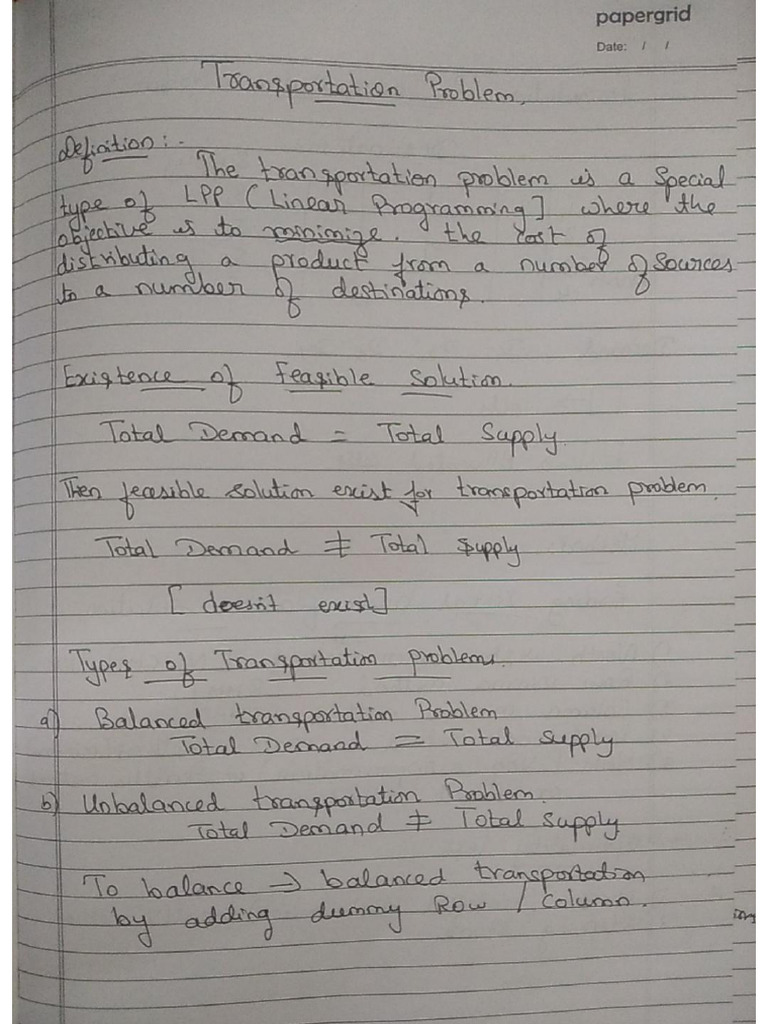 papergrid
Date: / /
Transportation Problem.
Definition :-
The transportation problem is a Special
type of LPP (Linear Programming] where the
objective is to minimize. the cost of
distributing a product from a number of Sources
to a number of destinations.
Existence of Feasible Solution.
Total Demand = Total Supply.
Then feasible solution exist for transportation problem.
Total Demand ≠ Total Supply
[ doesn't exist]
Types of Transportation problems.
a) Balanced transportation Problem
Total Demand = Total Supply
b) Unbalanced transportation Problem.
Total Demand ≠ Total Supply
To balance → balanced transportation
by adding dummy Row / Column.